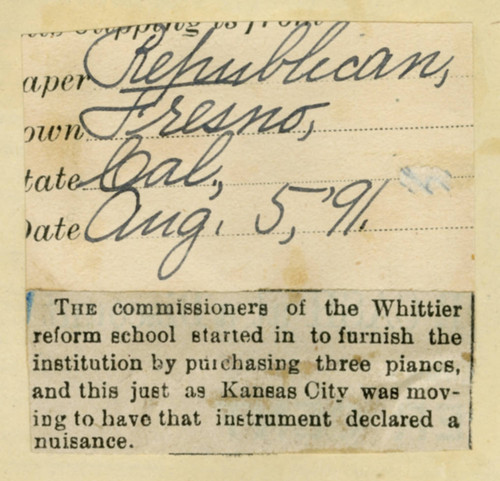 clipping is from
aper Republican,
own Fresno,
tate Cal,
Date Aug. 5, '91.
THE commissioners of the Whittier
reform school started in to furnish the
institution by purchasing three pianos,
and this just as Kansas City was mov-
ing to have that instrument declared a
nuisance.